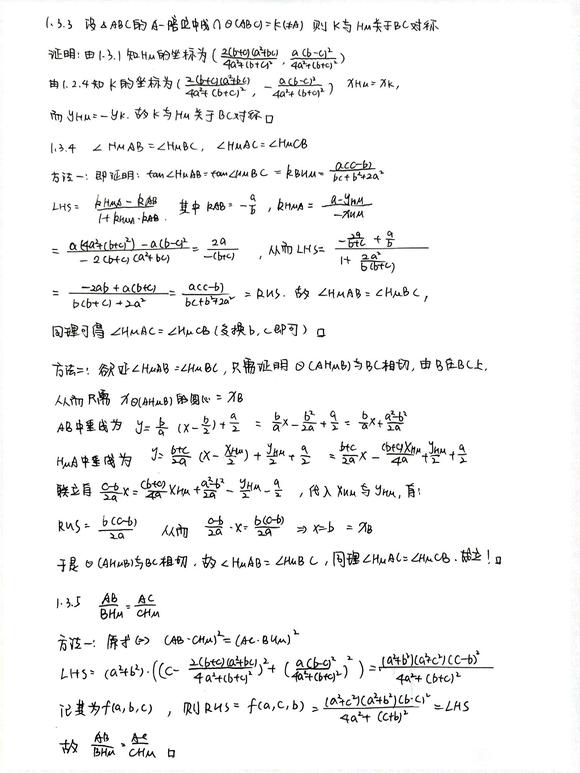 1.3.3 设△ABC的A-陪位中线∩⊙(ABC)=K(≠A) 则K与HM关于BC对称
证明:由1.3.1知HM的坐标为(2(b+c)(a²+bc)/4a²+(b+c)², a(b-c)²/4a²+(b+c)²)
由1.2.4知K的坐标为(2(b+c)(a²+bc)/4a²+(b+c)², -a(b-c)²/4a²+(b+c)²) xHM=xK,
而yHM=-yK. 故K与HM关于BC对称□
1.3.4 ∠HMAB=∠HMBC, ∠HMAC=∠HMCB
方法一:即证明:tan∠HMAB=tan∠HMBC=kBHM=a(c-b)/bc+b²+2a²
LHS=kHMA-kAB/1+kHMA·kAB 其中kAB=-a/b, kHMA=a-yHM/-xHM
=a(4a²+(b+c)²)-a(b-c)²/-2(b+c)(a²+bc)=2a/-(b+c), 从而LHS=-2a/b+c+a/b/1+2a²/b(b+c)
=-2ab+a(b+c)/b(b+c)+2a²=a(c-b)/bc+b²+2a²=RHS. 故∠HMAB=∠HMBC,
同理可得∠HMAC=∠HMCB(交换b,c即可) □
方法二:欲证∠HMAB=∠HMBC,只需证明⊙(AHMB)与BC相切,由B在BC上,
从而只需x⊙(AHMB)的圆心=xB
AB中垂线为 y=b/a(x-b/2)+a/2=b/a x-b²/2a+a/2=b/a x+a²-b²/2a
HMA中垂线为 y=b+c/2a(x-xHM/2)+yHM/2+a/2=b+c/2a x-(b+c)xHM/4a+yHM/2+a/2
联立有 c-b/2a x=(b+c)/4a xHM+a²-b²/2a-yHM/2-a/2, 代入xHM与yHM,有:
RHS=b(c-b)/2a 从而 c-b/2a·x=b(c-b)/2a⇒x=b=xB
于是⊙(AHMB)与BC相切.故∠HMAB=∠HMBC,同理∠HMAC=∠HMCB.成立!□
1.3.5 AB/BHM=AC/CHM
方法一:原式⇔(AB·CHM)²=(AC·BHM)²
LHS=(a²+b²)·((c-2(b+c)(a²+bc)/4a²+(b+c)²)²+(a(b-c)²/4a²+(b+c)²)²)=(a²+b²)(a²+c²)(c-b)²/4a²+(b+c)²
记其为f(a,b,c), 则RHS=f(a,c,b)=(a²+c²)(a²+b²)(b-c)²/4a²+(c+b)²=LHS
故 AB/BHM=AC/CHM □